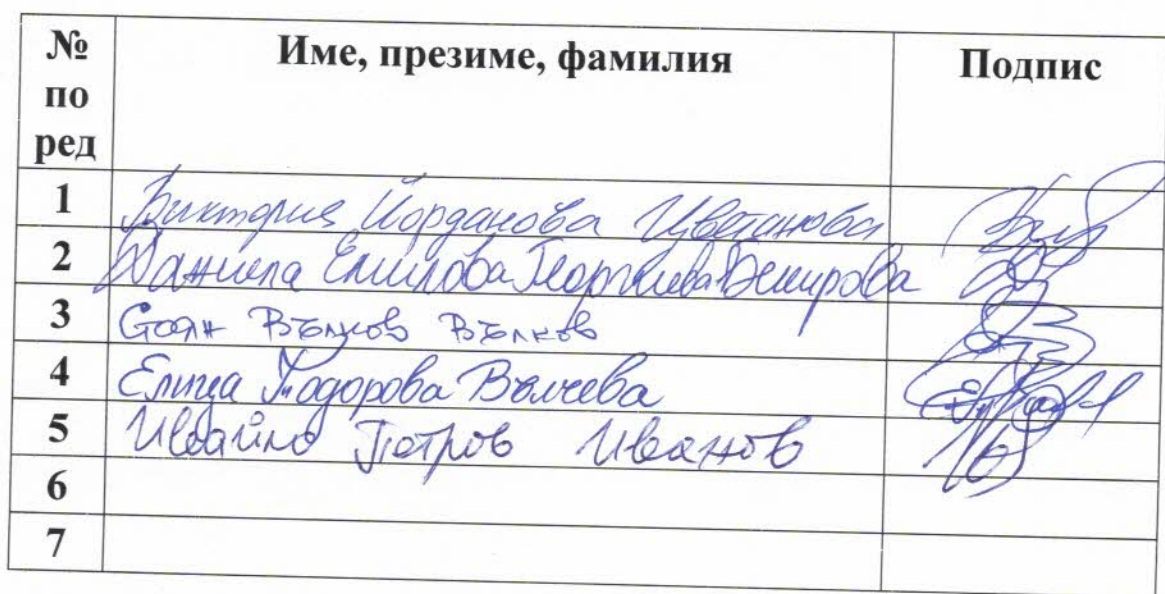 № по ред Име, презиме, фамилия Подпис
1 Виктория Йорданова Цветанова
2 Даниела Емилова Георгиева-Демирова
3 Стоян Вълков Вълков
4 Елица Тодорова Вълчева
5 Ивайло Петров Иванов
6
7